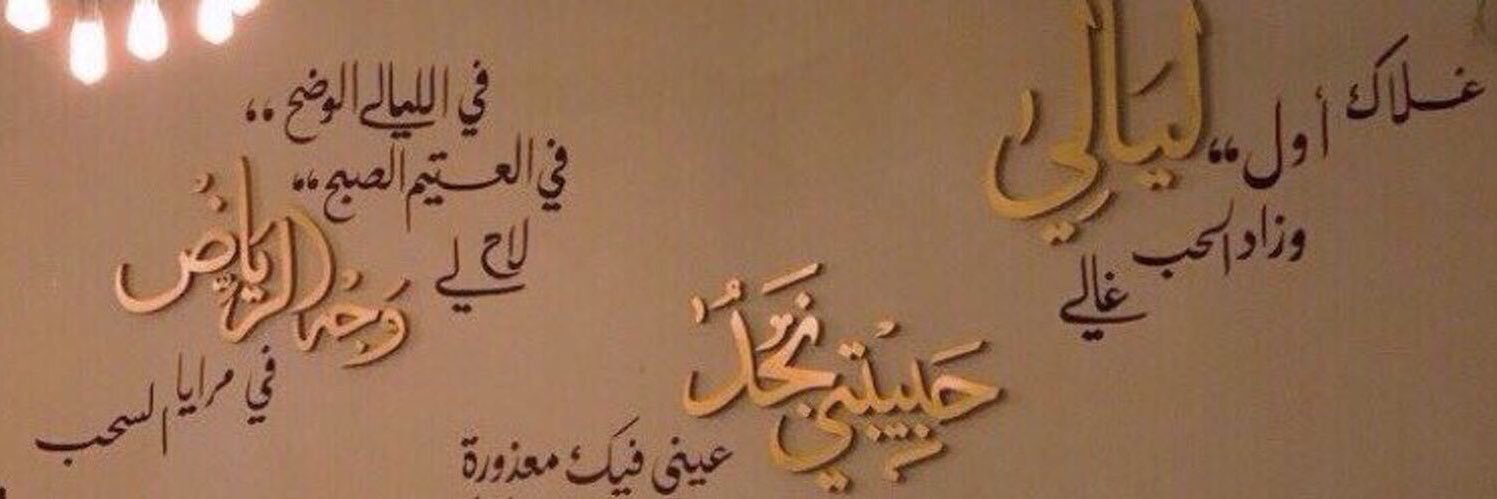 غلاك أول،، ليالي
وزاد الحب غالي
حبيبتي نجد
عيني فيك معذورة
في الليالي الوضح،،
في العتيم الصبح،،
لاح لي
وجه الرياض
في مرايا السحب